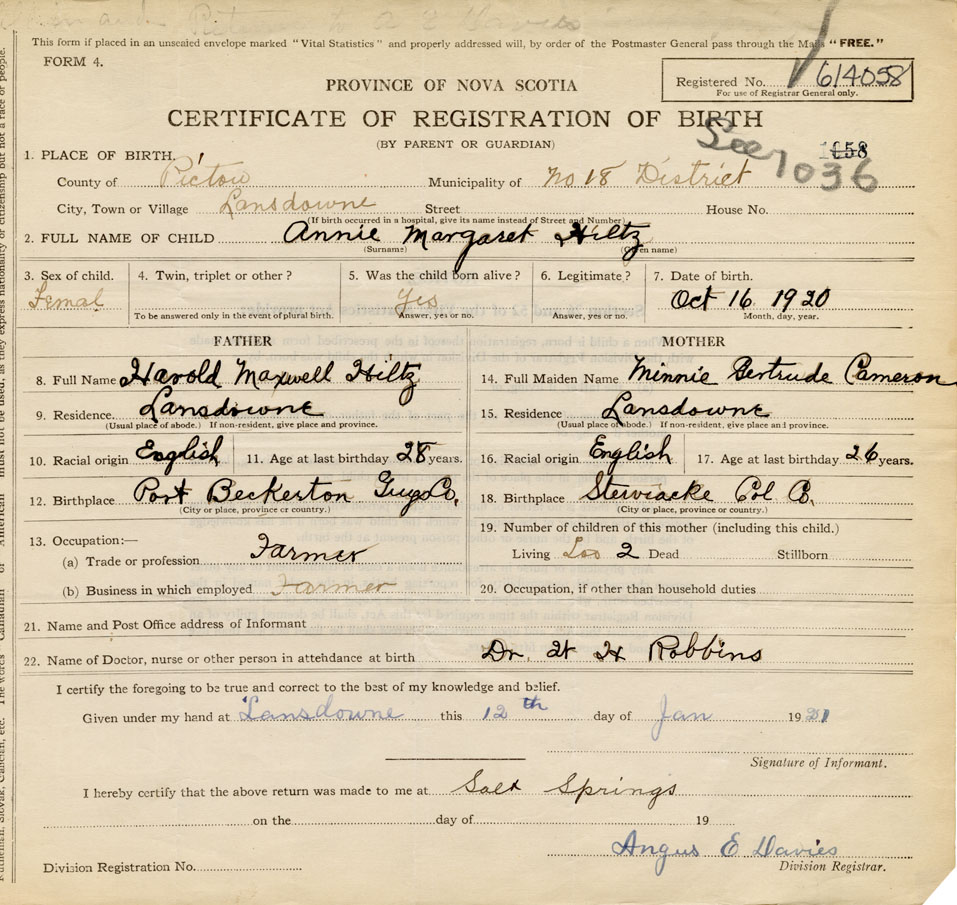 This form if placed in an unsealed envelope marked "Vital Statistics" and properly addressed will, by order of the Postmaster General pass through the Mails "FREE."
FORM 4.
Registered No. 614058
For use of Registrar General only.
PROVINCE OF NOVA SCOTIA
CERTIFICATE OF REGISTRATION OF BIRTH
(BY PARENT OR GUARDIAN)
See 7036
1658
1. PLACE OF BIRTH.
County of Pictou Municipality of No 18 District
City, Town or Village Lansdowne Street House No.
(If birth occurred in a hospital, give its name instead of Street and Number)
2. FULL NAME OF CHILD Annie Margaret Hiltz
(Surname) (Given name)
3. Sex of child. 4. Twin, triplet or other? 5. Was the child born alive? 6. Legitimate? 7. Date of birth.
Femal Yes Oct 16 1920
To be answered only in the event of plural birth. Answer, yes or no. Answer, yes or no. Month, day, year.
FATHER MOTHER
8. Full Name Harold Maxwell Hiltz 14. Full Maiden Name Minnie Gertrude Cameron
9. Residence. Lansdowne 15. Residence Lansdowne
(Usual place of abode.) If non-resident, give place and province. (Usual place of abode.) If non-resident, give place and province.
10. Racial origin English 11. Age at last birthday 28 years. 16. Racial origin English 17. Age at last birthday 26 years.
12. Birthplace Port Beckerton Guys Co. 18. Birthplace Stewiacke Col Co.
(City or place, province or country.) (City or place, province or country.)
13. Occupation:— 19. Number of children of this mother (including this child.)
(a) Trade or profession Farmer Living 2 Dead Stillborn
(b) Business in which employed Farmer 20. Occupation, if other than household duties
21. Name and Post Office address of Informant
22. Name of Doctor, nurse or other person in attendance at birth Dr. H Robbins
I certify the foregoing to be true and correct to the best of my knowledge and belief.
Given under my hand at Lansdowne this 12th day of Jan 1921
Signature of Informant.
I hereby certify that the above return was made to me at Salt Springs
on the day of 19
Angus E Davies
Division Registration No. Division Registrar.